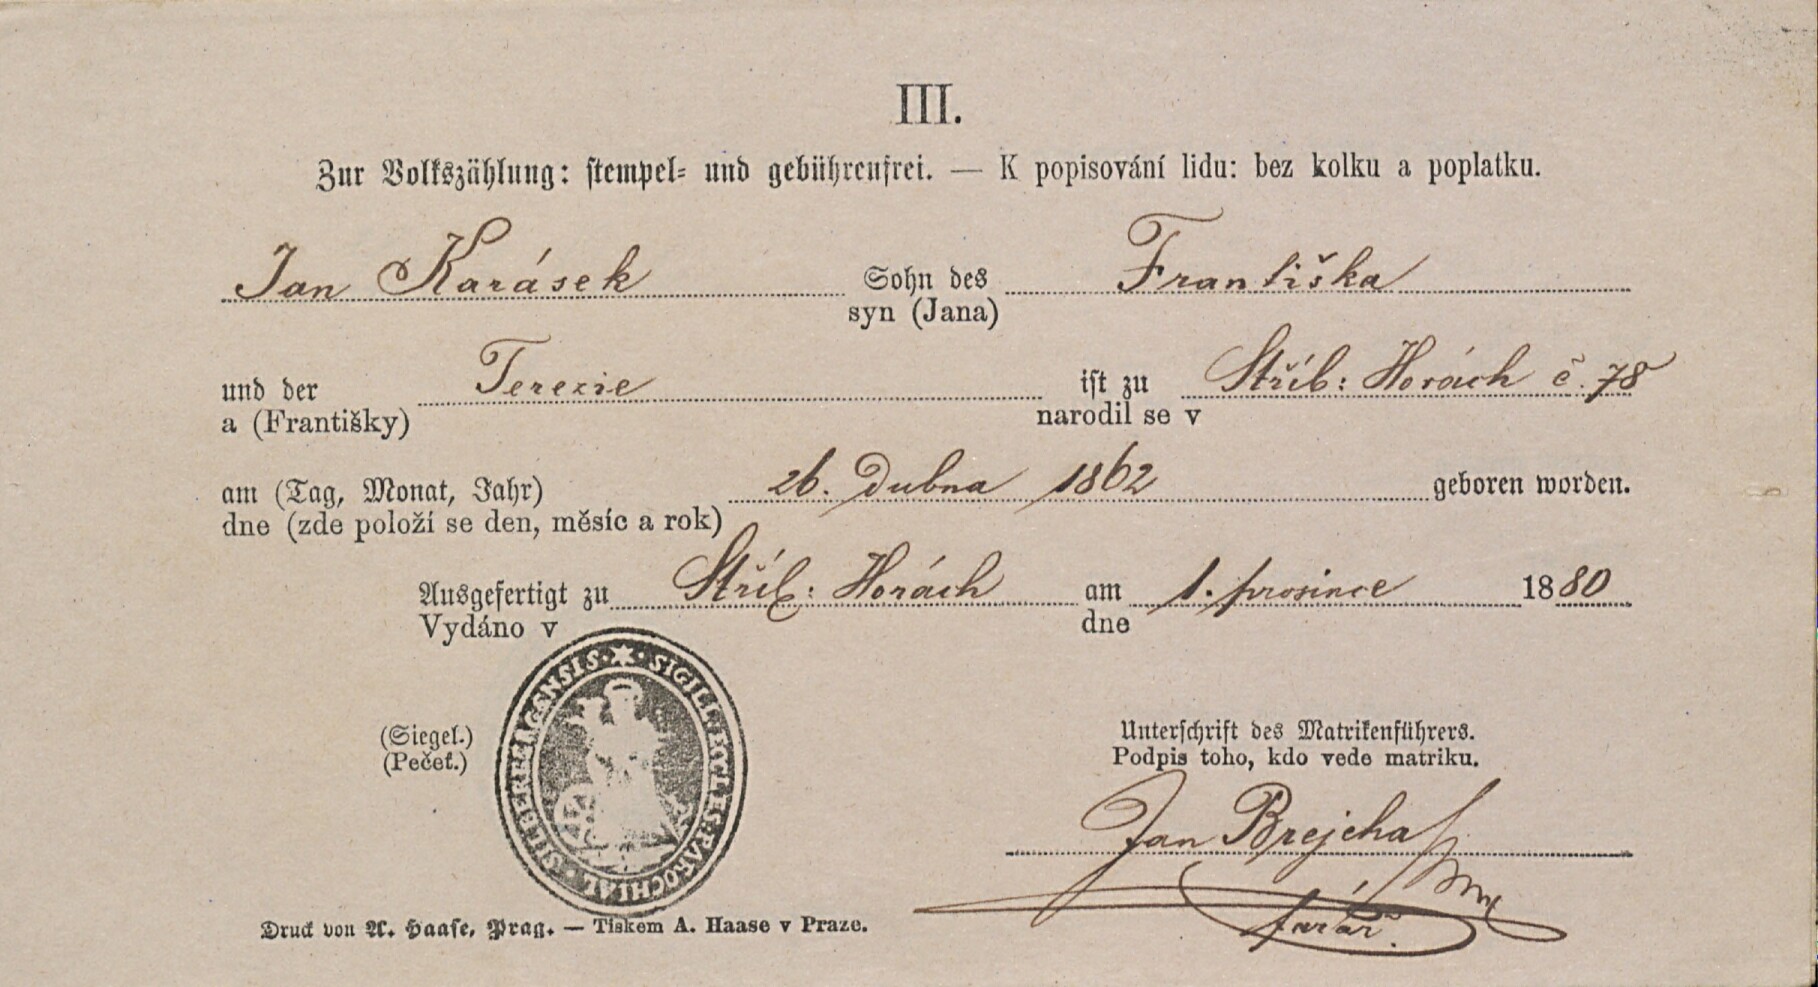 III.
Zur Volkszählung: stempel- und gebührenfrei. — K popisování lidu: bez kolku a poplatku.
Jan Karásek Sohn des Františka
syn (Jana)
und der Terezie ist zu Stříb: Horách č. 78
a (Františky) narodil se v
am (Tag, Monat, Jahr) 26. Dubna 1862 geboren worden.
dne (zde položí se den, měsíc a rok)
Ausgefertigt zu Stříb: Horách am 1. prosince 1880
Vydáno v dne
SIGILL. ECCLES. PAROCHIAL. SILBERBERGENSIS
(Siegel.)
(Pečeť.)
Unterschrift des Matrikenführers.
Podpis toho, kdo vede matriku.
Jan Brejcha
farář.
Druck von A. Haase, Prag. — Tiskem A. Haase v Praze.